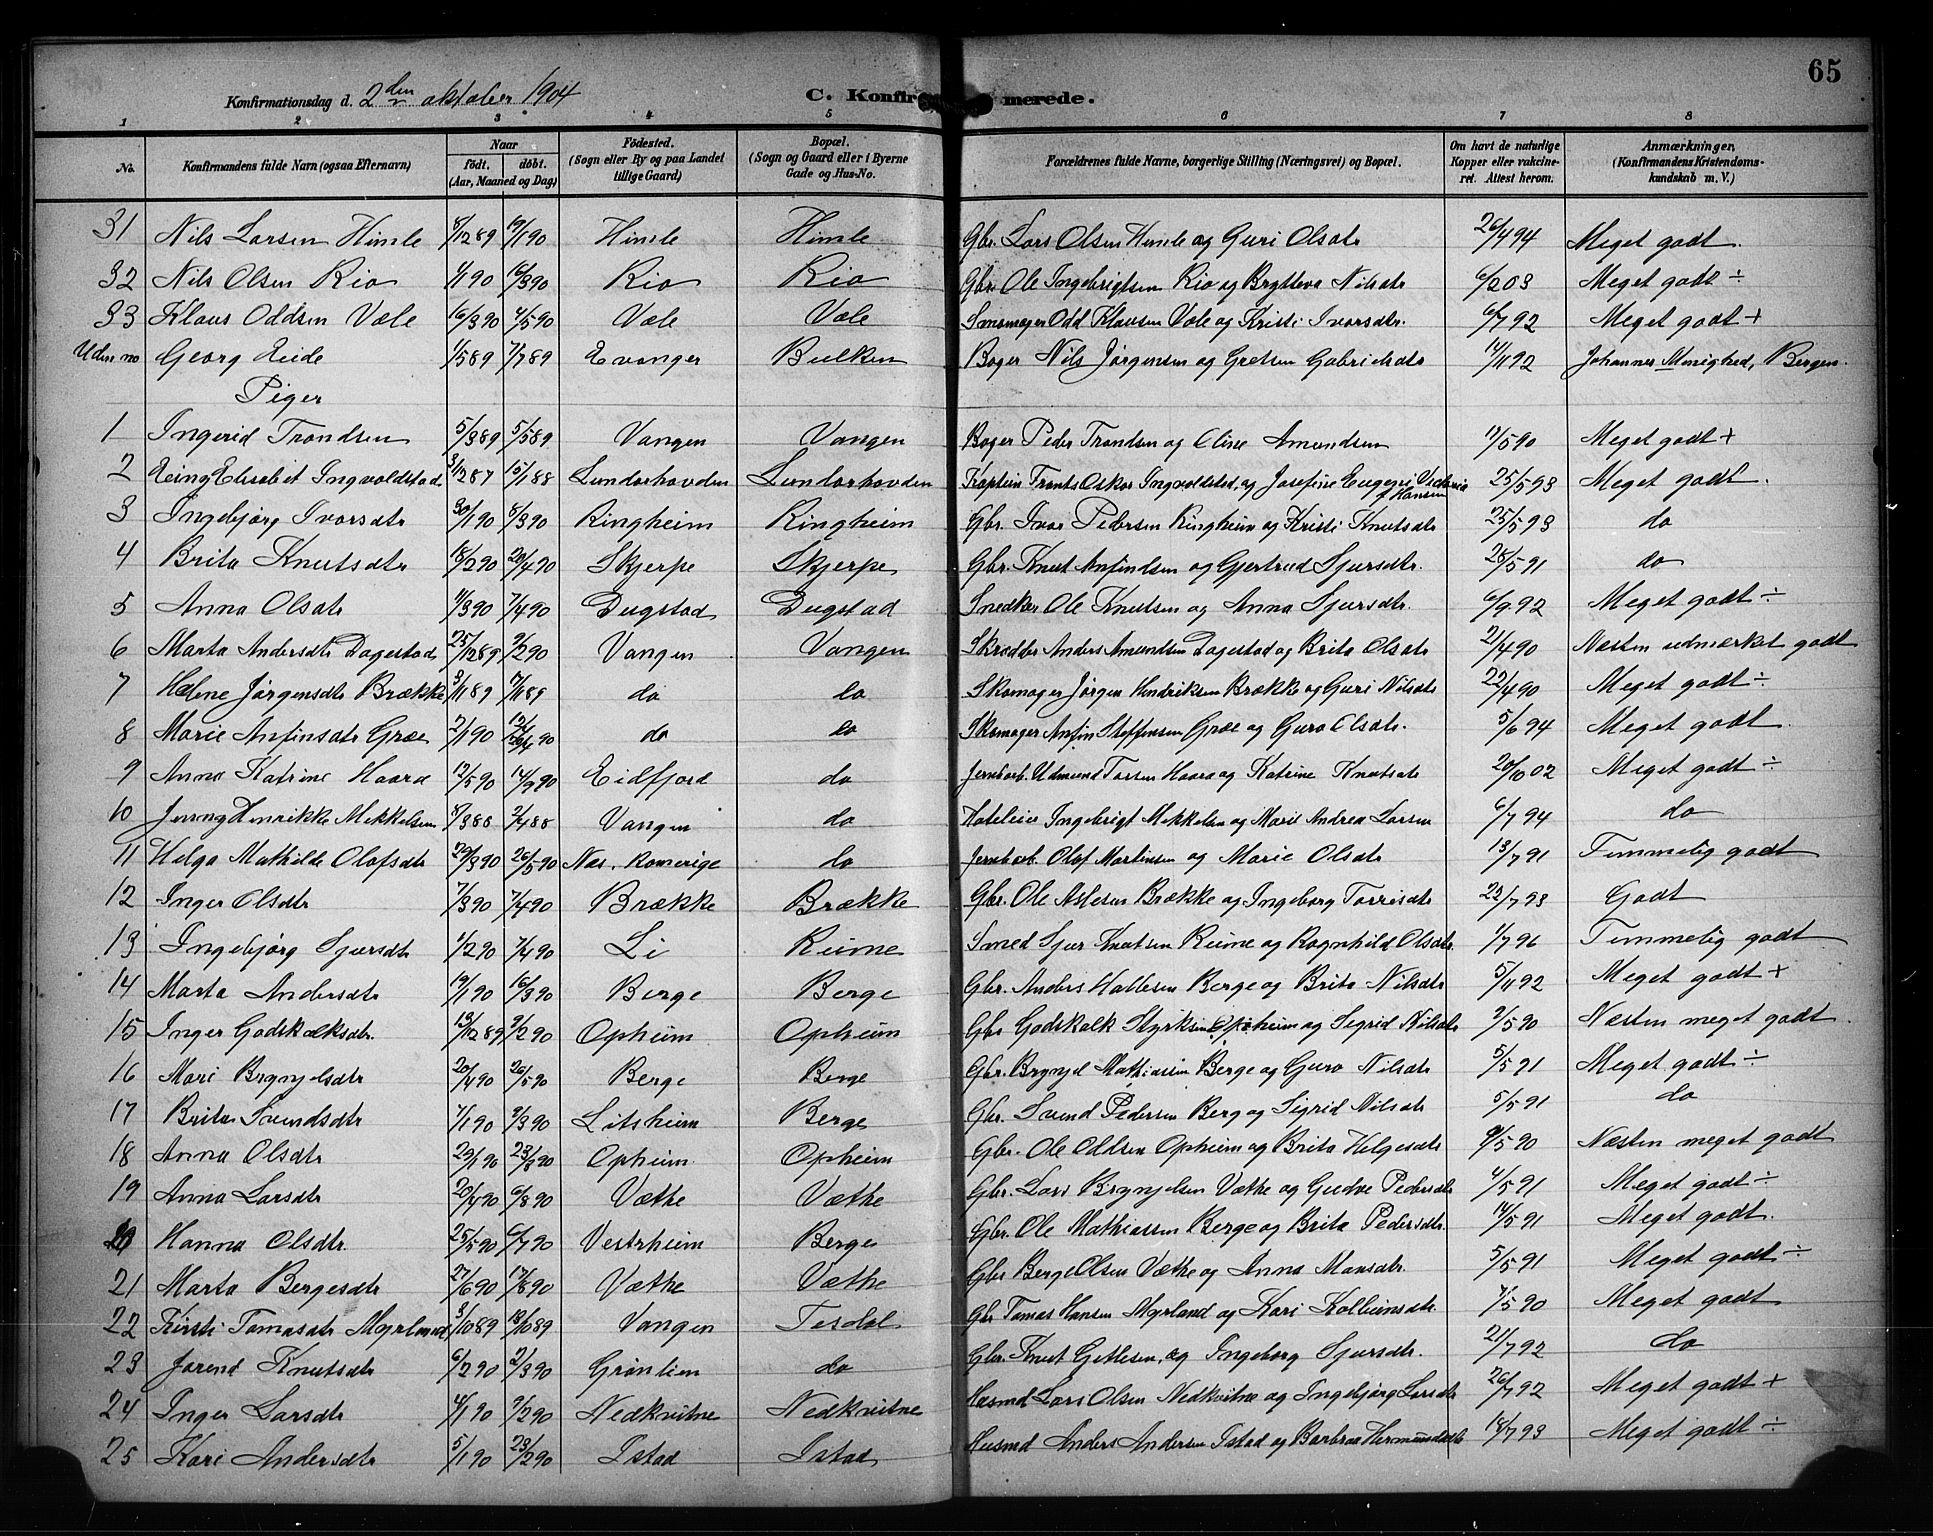 65
Konfirmationsdag d. 2den oktober 1904 C. Konfirmerede.
1 2 3 4 5 6 7 8
No. Konfirmandens fulde Navn (ogsaa Efternavn) Naar født. døbt. (Aar, Maaned og Dag) Fødested. (Sogn eller By og paa Landet tillige Gaard) Bopæl. (Sogn og Gaard eller i Byerne Gade og Hus-No. Forældrenes fulde Navne, borgerlige Stilling (Næringsvei) og Bopæl. Om havt de naturlige Kopper eller vakcineret. Attest herom. Anmærkninger, (Konfirmandens Kristendomskundskab m. V.)
31 Nils Larsen Himle 8/12 89 19/1 90 Himle Himle Gbr. Lars Olsen Himle og Guri Olsdtr 26/4 94 Meget godt.
32 Nils Olsen Rio 1/1 90 16/3 90 Rio Rio Gbr. Ole Ingebrigtsen Rio og Brytteva Nilsdtr 6/2 03 Meget godt ÷
33 Klaus Oddsen Væle 16/3 90 4/5 90 Væle Væle Smømager Odd Klausen Væle og Kristi Ivarsdtr. 6/7 92 Meget godt +
Uden no Georg Eide 1/5 89 7/7 89 Evanger Bulken Bager Nils Jørgensen og Gretsen Gabrielsdtr 14/11 92 Johannes Menighed, Bergen.
Piger
1 Ingerid Trondsen 5/3 89 5/5 89 Vangen Vangen Bager Peder Trondsen og Oline Amundsen 11/5 90 Meget godt +
2 Elisabet Ingvoldstad 3/12 87 15/1 88 Lundarhovden Lundarhovden Kaptein Frants Oskar Ingvoldstad, og Josefine Eugeni Victoria f. Hansen 25/5 93 Meget godt.
3 Ingebjørg Ivarsdtr 30/1 90 8/3 90 Ringheim Ringheim Gbr. Ivar Pedersen Ringheim og Kristi Knutsdtr 25/5 93 do
4 Brita Knutsdtr 18/2 90 20/4 90 Skjerpe Skjerpe Gbr. Knut Anfindsen og Gjertrud Sjursdtr. 28/5 91 do
5 Anna Olsdtr 11/3 90 7/4 90 Dugstad Dugstad Snedker Ole Knutsen og Anna Sjursdtr. 6/9 92 Meget godt ÷
6 Marta Andersdtr Dagestad 25/12 89 9/2 90 Vangen Vangen Skrædder Anders Amundsen Dagestad og Brita Olsdtr 2/4 90 Næsten udmærket godt
7 Helene Jørgensdtr Brække 3/1 89 7/1 89 do do Skomager Jørgen Hendriksen Brække og Guri Nilsdtr 22/4 90 Meget godt ÷
8 Marie Anfinsdtr Græe 2/1 90 12/1 20/4 90 do do Skomager Anfin Steffensen Græe og Guro Olsdtr. 5/6 94 Meget godt
9 Anna Katrine Haara 12/5 90 14/9 90 Eidfjord do Jernbarb. Udmund Torsen Haara og Katrine Knutsdtr 20/10 02 Meget godt ÷
10 Jenny Henrikke Mikkelsen 8/3 88 2/4 88 Vangen do Hoteleier Ingebrigt Mikkelsen og Marie Andrea Larsen 6/7 94 do
11 Helga Mathilde Olofsdtr 29/3 90 26/5 90 Næs. Romerige do Jernbarb. Olof Martinsen og Marie Olsdtr 13/7 91 Temmelig godt
12 Inger Olsdtr 7/3 90 7/4 90 Brække Brække Gbr. Ole Aslesen Brække og Ingeborg Torrisdtr 23/7 93 Godt
13 Ingebjørg Sjursdtr 1/2 90 7/4 90 Li Rume Smed Sjur Knutsen Rume og Ragnhild Olsdtr. 1/7 96 Temmelig godt
14 Marta Andersdtr 19/1 90 16/3 90 Berge Berge Gbr. Anders Hallesen Berge og Brita Nilsdtr 5/11 92 Meget godt +
15 Inger Godskalksdtr. 13/12 89 9/2 90 Opheim Opheim Gbr Godskalk Styrksen Opheim og Sigrid Nilsdtr 2/5 90 Næsten meget godt.
16 Mari Brynjelsdtr 20/4 90 26/5 90 Berge Berge Gbr. Brynjel Mathiassen Berge og Guro Nilsdtr 5/5 91 Meget godt ÷
17 Brita Svendsdtr 7/1 90 9/3 90 Litsheim Berge Gbr. Svend Pedersen Berg og Sigrid Nilsdtr 5/5 91 do
18 Anna Olsdtr 29/1 90 23/3 90 Opheim. Opheim Gbr. Ole Oddsen Opheim og Brita Helgesdtr 9/5 90 Næsten meget godt
19 Anna Larsdtr 20/4 90 6/8 90 Væthe Væthe Gbr. Lars Brynjelsen Væthe og Gudve Pedersdtr 4/5 91 Meget godt ÷
20 Hanna Olsdtr. 25/5 90 6/7 90 Vestrheim Berge Gbr. Ole Mathiassen Berge og Brita Pedersdtr. 14/5 91 Meget godt.
21 Marta Bergesdtr 27/6 90 17/8 90 Væthe Væthe Gbr Berge Olsen Væthe og Anna Monsdtr. 5/5 91 Meget godt ÷
22 Kirsti Tomasdtr Myrland 3/10 89 13/10 89 Vangen Tesdal Gbr Tomas Hansen Myrland og Kari Kolbeinsdtr 7/5 90 Meget godt
23 Jorend Knutsdtr 6/2 90 2/3 90 Grønlien do Gbr. Knut Getlesen, og Ingeborg Sjursdtr. 21/7 92 do
24 Inger Larsdtr 4/1 90 9/2 90 Nedkvitne Nedkvitne Husmd Lars Olsen Nedkvitne og Ingebjørg Larsdtr 26/7 92 Meget godt +
25 Kari Andersdtr 5/1 90 23/2 90 Istad Istad Husmd Anders Andersen Istad og Barbraa Hermundsdtr 18/7 93 Meget godt ÷